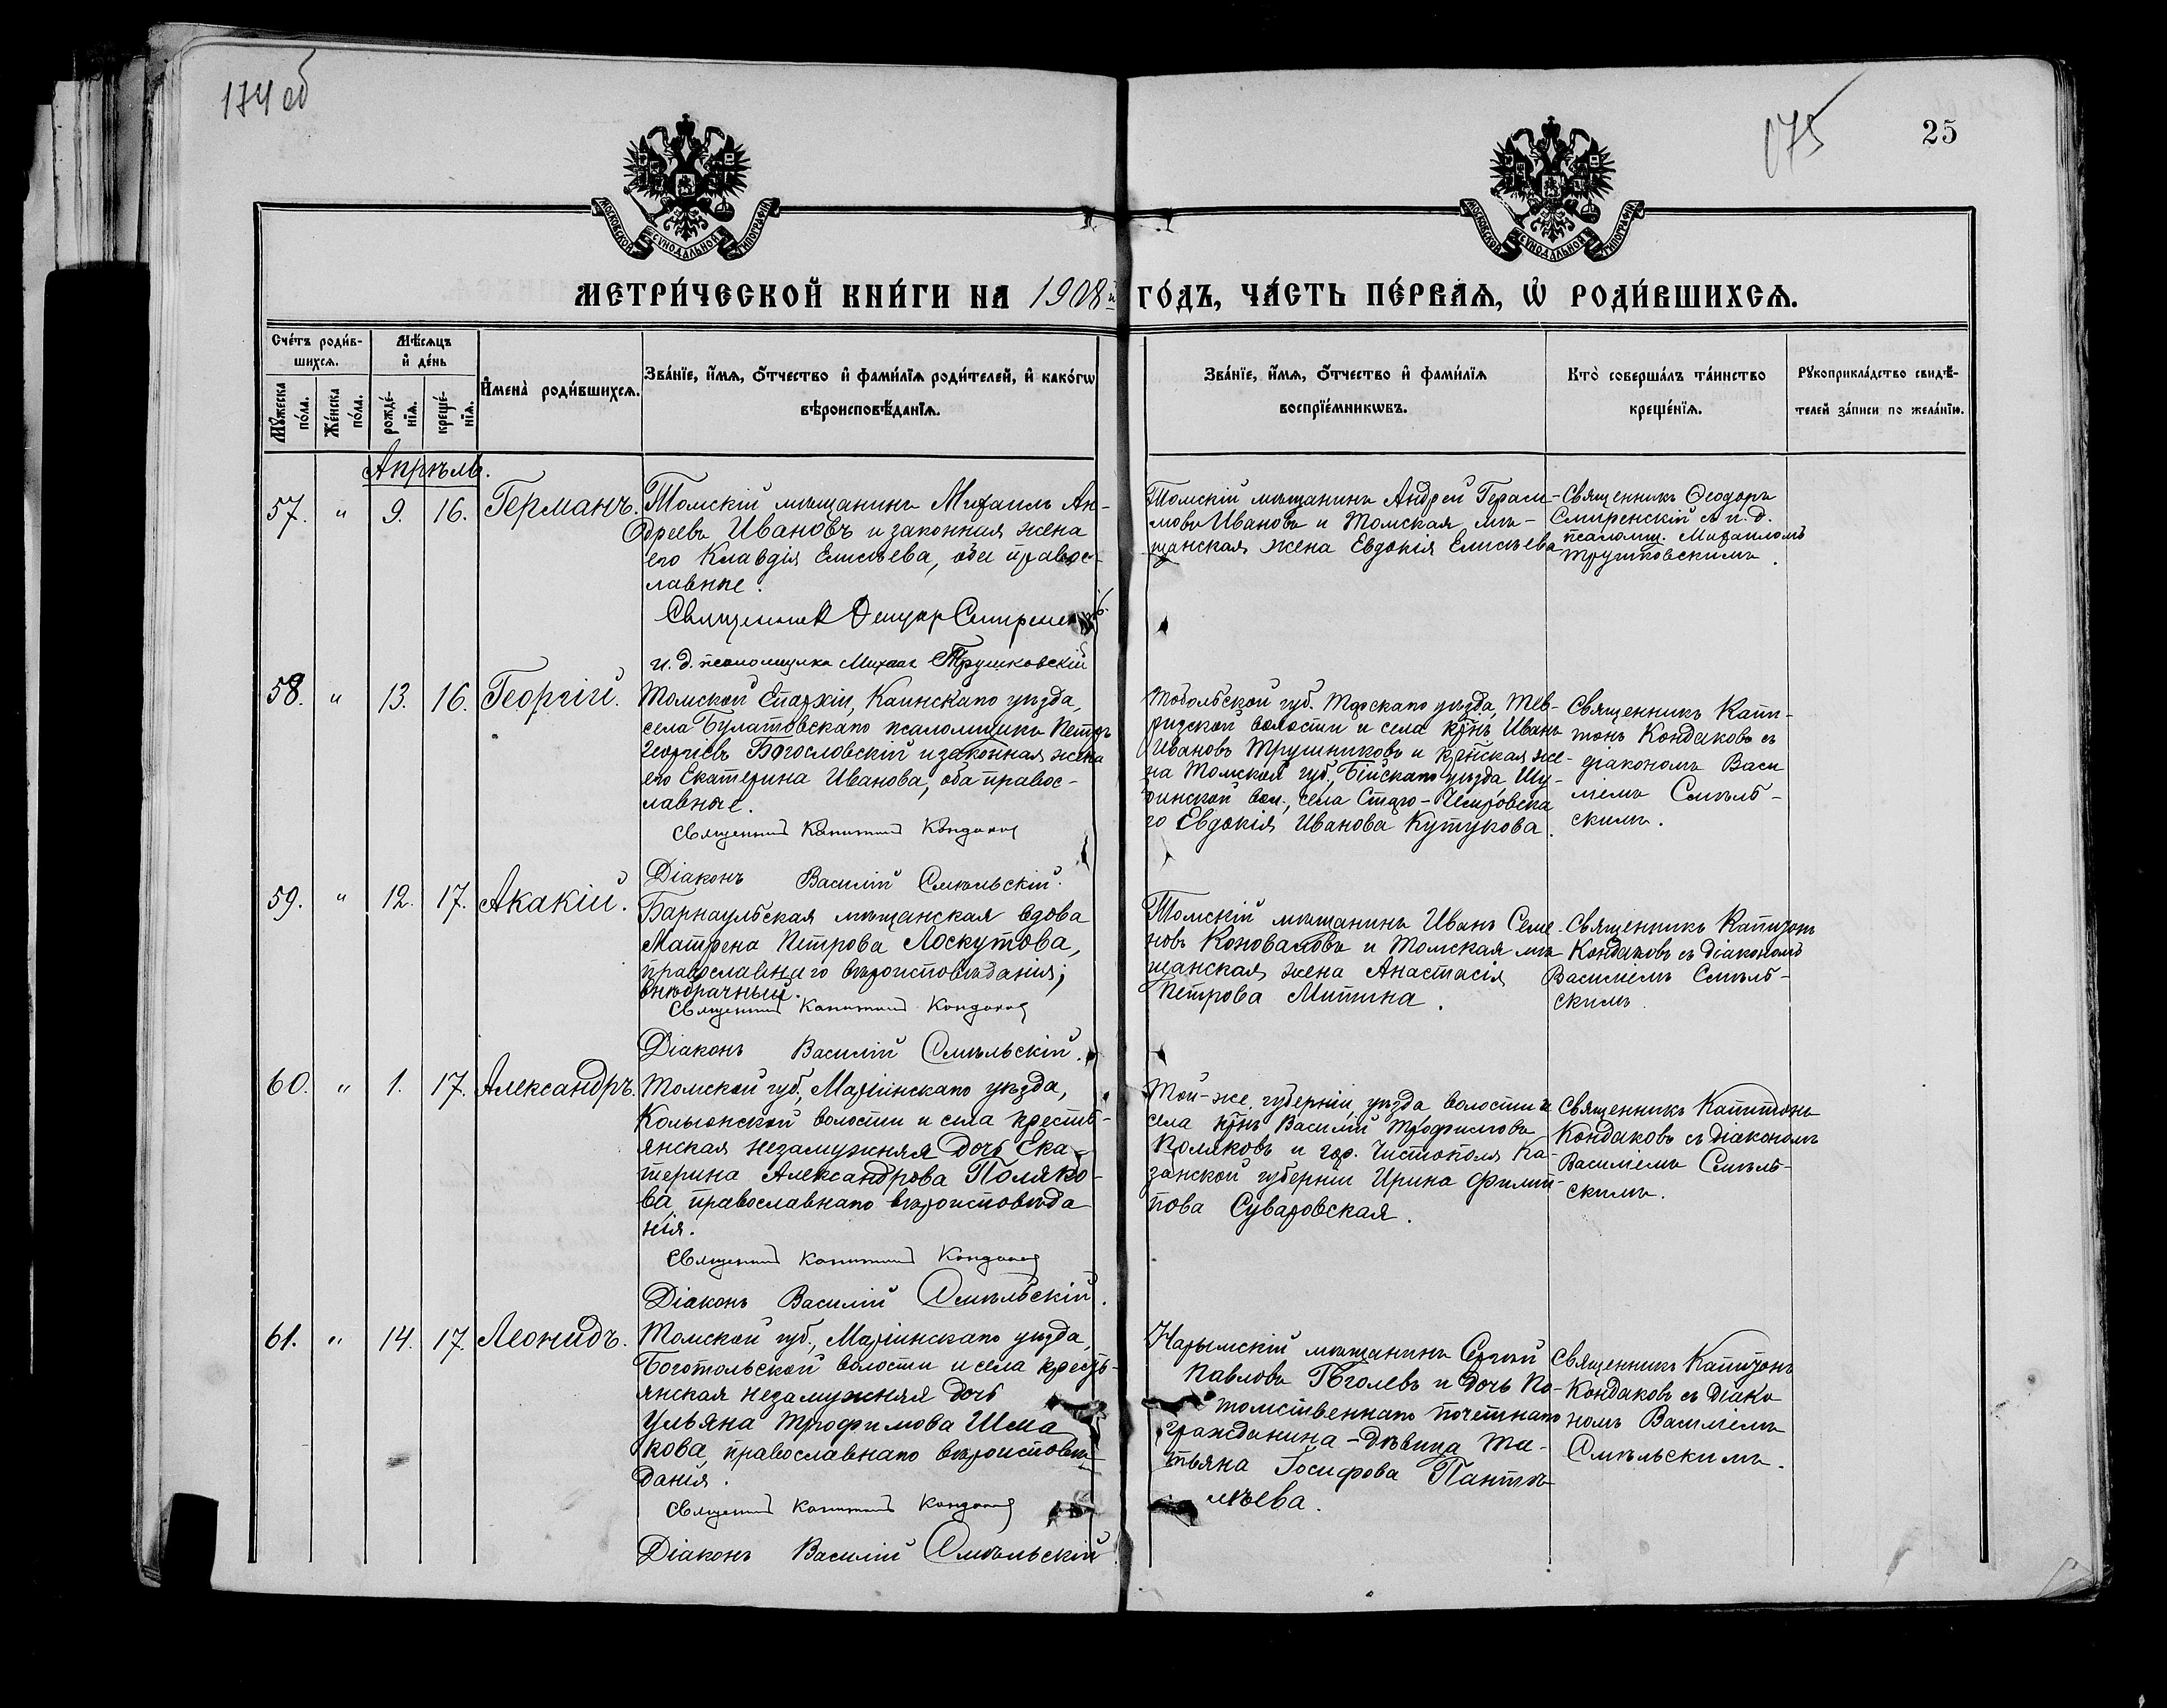 174 об
175
25
МОСКОВСКОЙ СѴНОДАЛЬНОЙ ТИПОГРАФІИ
МОСКОВСКОЙ СѴНОДАЛЬНОЙ ТИПОГРАФІИ
МЕТРИ́ЧЕСКОЙ КНИ́ГИ НА 1908й ГО́ДЪ, ЧА́СТЬ ПЕ́РВАѦ, Ѡ҆ РОДИ́ВШИХСѦ.
Сче́тъ роди́в-
шихсѧ.
Мꙋ́жеска
по́ла.
Же́нска
по́ла.
Мѣ́сѧцъ
и҆ де́нь
рожде́-
нїѧ.
креще́-
нїѧ.
И҆мена̀ роди́вшихсѧ.
Зва́нїе, и҆́мѧ, ѻ҆́тчество и҆ фами́лїѧ роди́телей, и҆ како́гѡ
вѣроисповѣ́данїѧ.
Зва́нїе, и҆́мѧ, ѻ҆́тчество и҆ фами́лїѧ
воспрїе́мникѡвъ.
Кто̀ соверша́лъ та́инство
креще́нїѧ.
Рꙋкоприкла́дство свидѣ́-
телей за́писи по жела́нїю.
Апрѣль.
57. " 9. 16. Германъ.
Томскій мѣщанинъ Михаилъ Ан-
дреевъ Ивановъ и законная жена
его Клавдія Елисѣева, оба правос-
лавные.
Священник Феодор Смиренскій
и. д. псаломщика Михаил Трушковскій
Томскій мѣщанинъ Андрей Гераси-
мовъ Ивановъ и Томская мѣ-
щанская жена Евдокія Елисѣева
Священникъ Феодоръ
Смиренскій съ и. д.
псаломщ. Михаиломъ
Трушковскимъ.
58. " 13. 16. Георгій.
Томской Епархіи, Каинскаго уѣзда,
села Булатовскаго псаломщикъ Петръ
Георгіевъ Богословскій и законная жена
его Екатерина Иванова, оба правос-
лавные.
Священник Капитон Кондаков
Діаконъ Василій Смѣльскій.
Тобольской губ. Тарскаго уѣзда, Тев-
ризской волости и села крнъ Иванъ
Ивановъ Трушниковъ и крнская же-
на Томской губ., Бійскаго уѣзда,
вол., села Старо-
го Евдокія Иванова Кутукова.
Священникъ Капи-
тонъ Кондаковъ съ
діакономъ Васи
ліемъ Смѣль-
скимъ.
59. " 12. 17. Акакій.
Барнаульская мѣщанская вдова
Матрена Петрова Лоскутова,
православнаго вѣроисповѣданія;
внѣбрачный.
Священник Капитон Кондаков
Діаконъ Василій Смѣльскій.
Томскій мѣщанинъ Иванъ Семе-
новъ Коноваловъ и Томская мѣ
щанская жена Анастасія
Петрова Митина.
Священникъ Капитонъ
Кондаковъ съ діакономъ
Василіемъ Смѣль-
скимъ.
60. " 1. 17. Александръ.
Томской губ., Маріинскаго уѣзда,
Кольонской волости и села кресть-
янская незамужняя дочь Ека-
терина Александрова Поляко-
ва, православнаго вѣроисповѣда
нія.
Священник Капитон Кондаков
Діаконъ Василій Смѣльскій.
Той-же губерніи, уѣзда волости и
села крнъ Василій Трофимовъ
Поляковъ и гор. Чистополя Ка-
занской губерніи Ирина Филип-
пова Суваровская.
Священникъ Капитонъ
Кондаковъ съ діакономъ
Василіемъ Смѣль-
скимъ.
61. " 14. 17. Леонидъ.
Томской губ., Маріинскаго уѣзда,
Боготольской волости и села кресть-
янская незамужняя дочь
Ульяна Трофимова Шма
кова, православнаго вѣроисповѣ-
данія.
Священник Капитон Кондаков
Діаконъ Василій Смѣльскій
Нарымскій мѣщанинъ Сергѣй
Павловъ Гоголевъ и дочь По-
томственнаго почетнаго
гражданина - дѣвица Та-
тьяна Іосифова Пантѣ-
лѣева.
Священникъ Капитонъ
Кондаковъ съ діако
номъ Василіемъ
Смѣльскимъ.